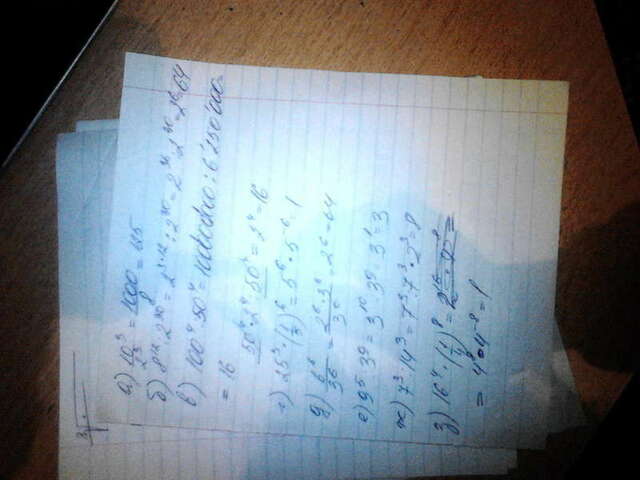 а) 10³/2³ = 1000/8 = 125
б) 8¹²:2³⁰ = 2³·¹²:2³⁰ = 2³⁶:2³⁰ = 2⁶ = 64
в) 100⁴:50⁴ = 100000000:6250000=
= 16
50⁴·2⁴:50⁴ = 2⁴ = 16
г) 25³·(1/5)⁶ = 5⁶·5⁻⁶ = 1
д) 6⁶/3⁶ = 2⁶·3⁶/3⁶ = 2⁶ = 64
е) 9⁵:3⁹ = 3¹⁰:3⁹ = 3¹ = 3
ж) 7³:14³ = 7³:7³·2³ = 8
з) 16⁴·(1/4)⁸ =
= 4⁸·4⁻⁸ = 1